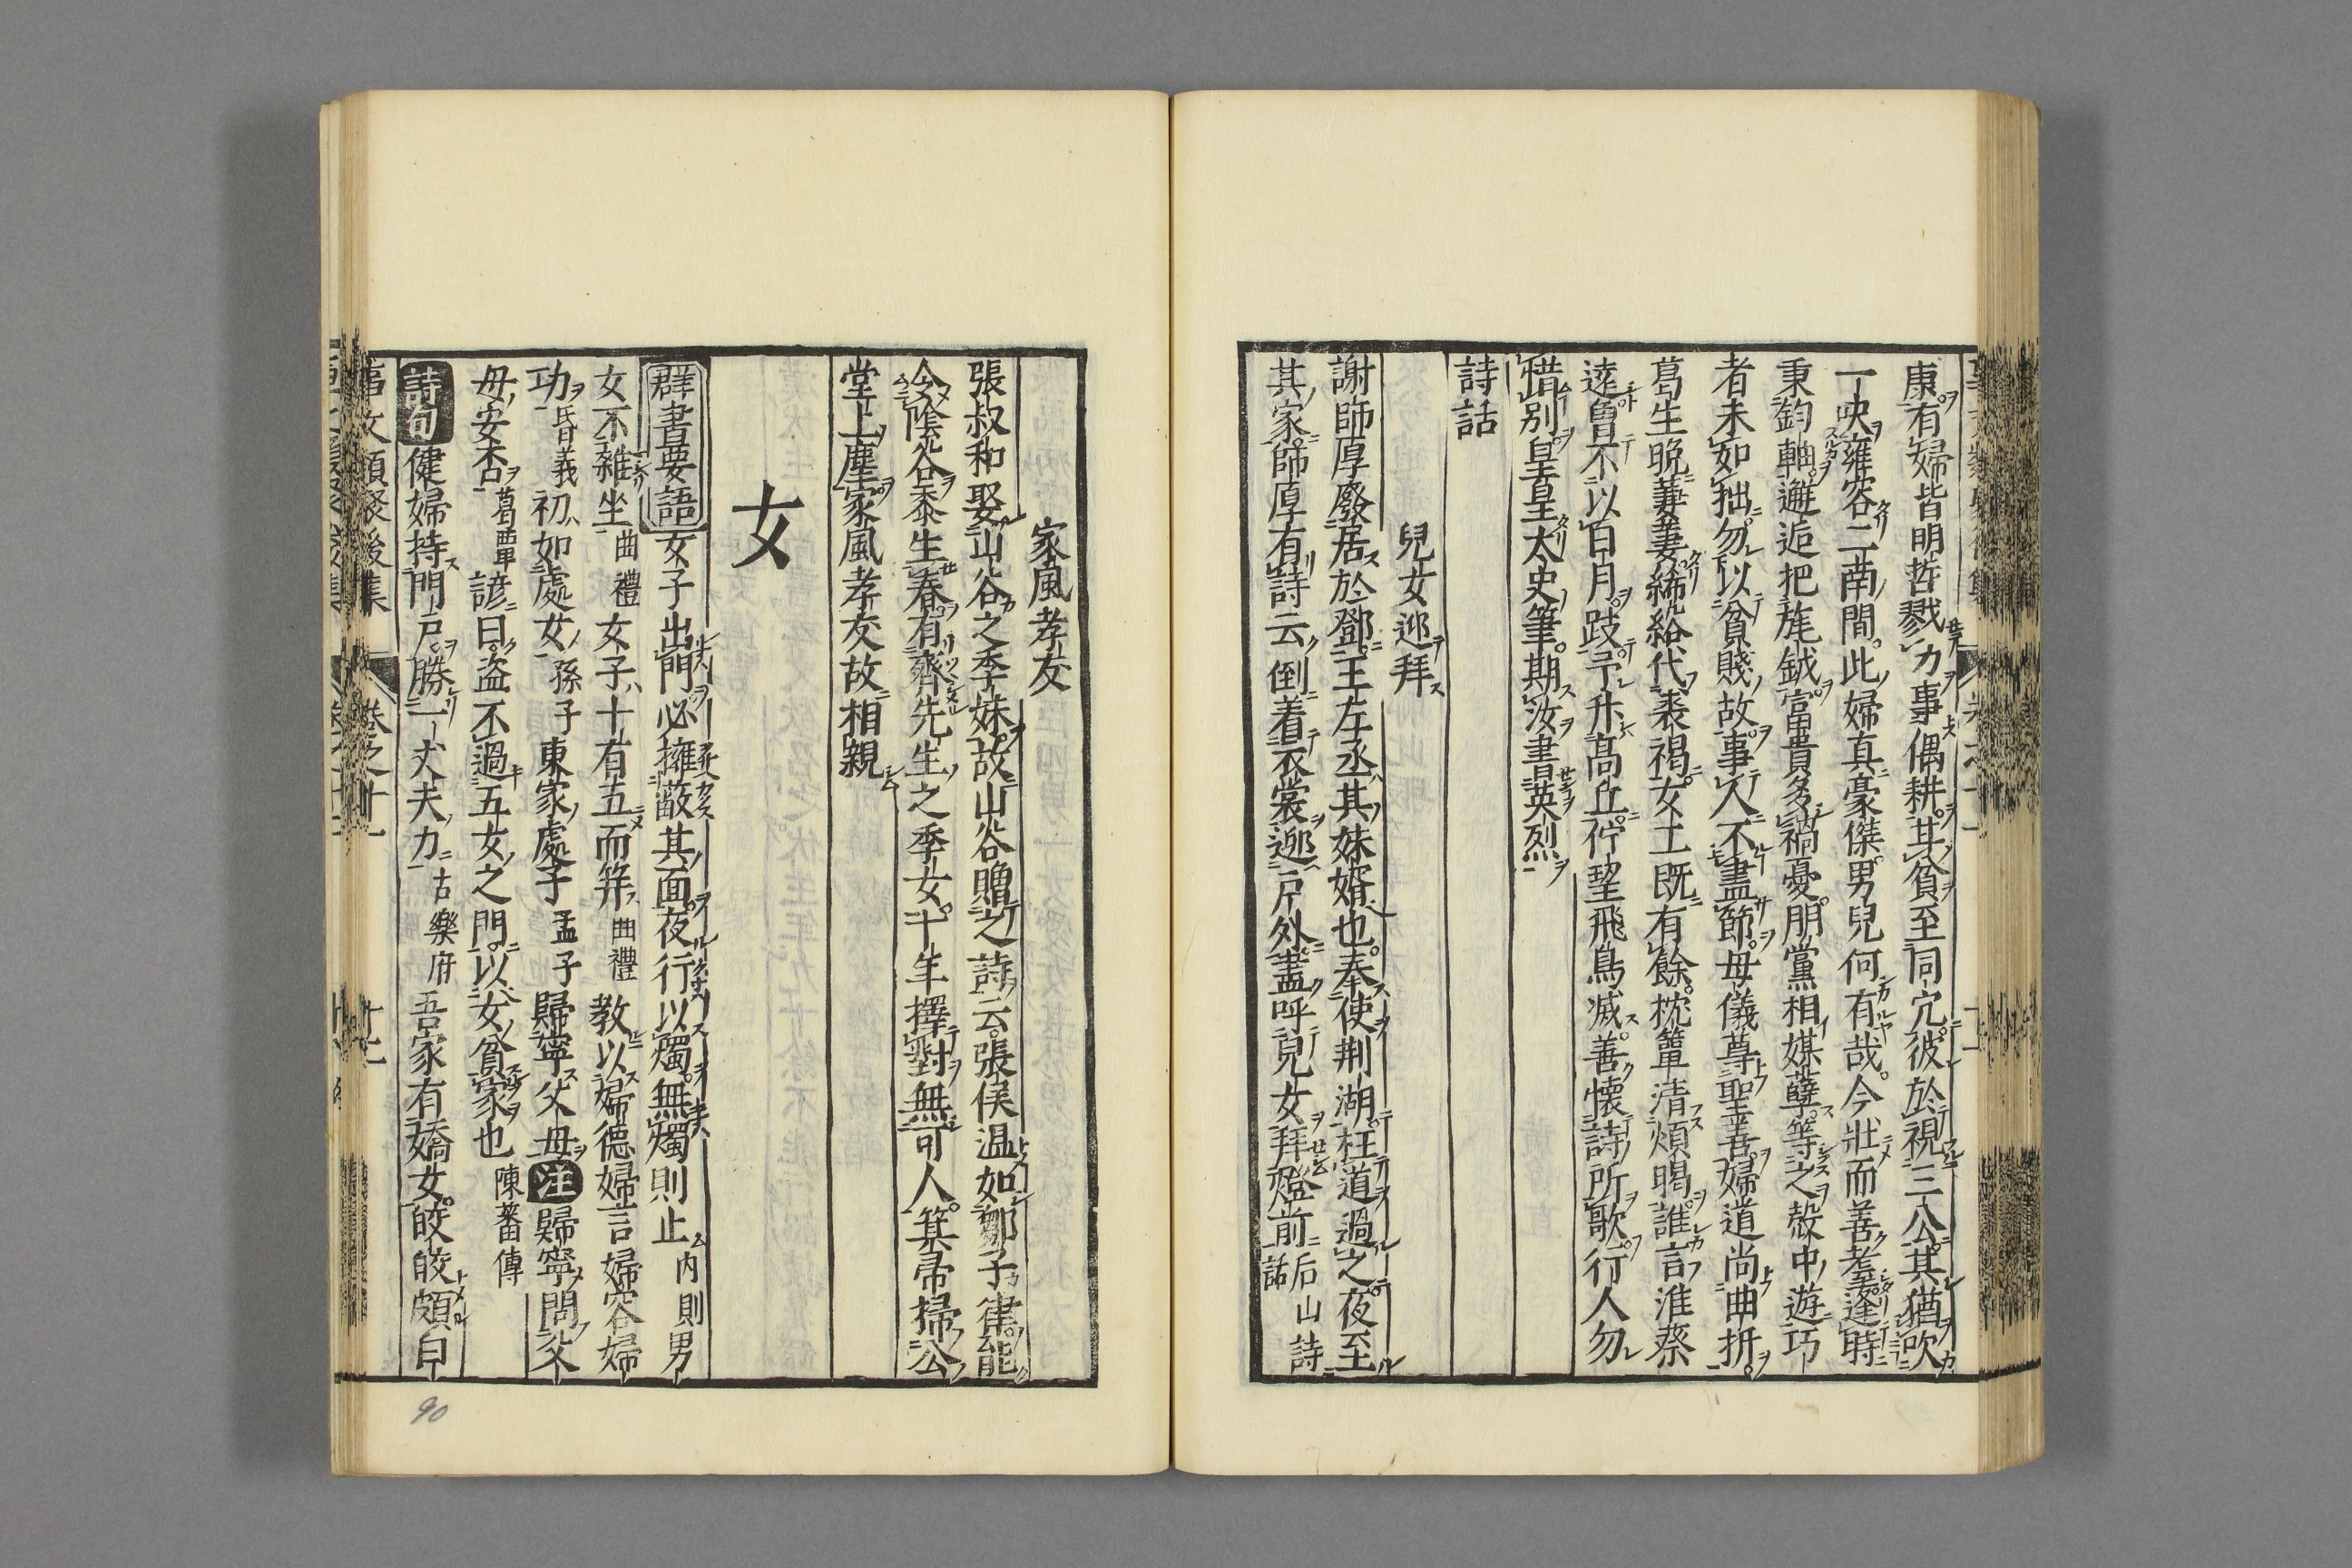 康有婦皆明哲戮力事偶耕其貧至同穴彼於視三公其猶吹
一吷雍容二南間此婦真豪傑男兒何有哉今壯而善老蹇逢時
秉鈞軸邂逅把旄鉞富貴多禍憂朋黨相媒糵等之彀中遊巧
者未如拙勿以貧賤故事人不盡節母儀尊聖善婦道尚曲折
葛生晩萋萋絺綌代裘褐女工既有餘枕簟清煩暍誰言淮蔡
遠魯不以日月跂予升高丘佇望飛鳥滅善懷詩所歌行人勿
惜別皇皇太史筆期汝書英烈
詩話
兒女迎拜
謝師厚廢居於鄧王左丞其妹婿也奉使荆湖枉道過之夜至
其家師厚有詩云倒着衣裳迎戸外盡呼兒女拜燈前后山詩話
家風孝友
張叔和娶山谷之季妹故山谷贈之詩云張侯温如鄒子律能
令陰谷黍生春有齊先生之季女十年擇對無可人箕帚掃公
堂上塵家風孝友故相親
女
群書要語女子出門必擁蔽其面夜行以燭無燭則止内則男
女不雜坐曲禮女子十有五而筓曲禮教以婦德婦言婦容婦
功昏義初如處女孫子東家處子孟子歸寧父母注歸寧問父
母安否葛覃諺曰盗不過五女之門以女貧家也陳蕃傳
詩句健婦持門戸勝一丈夫力古樂府吾家有嬌女皎皎頗白
事文類聚後集 卷之十一 十二